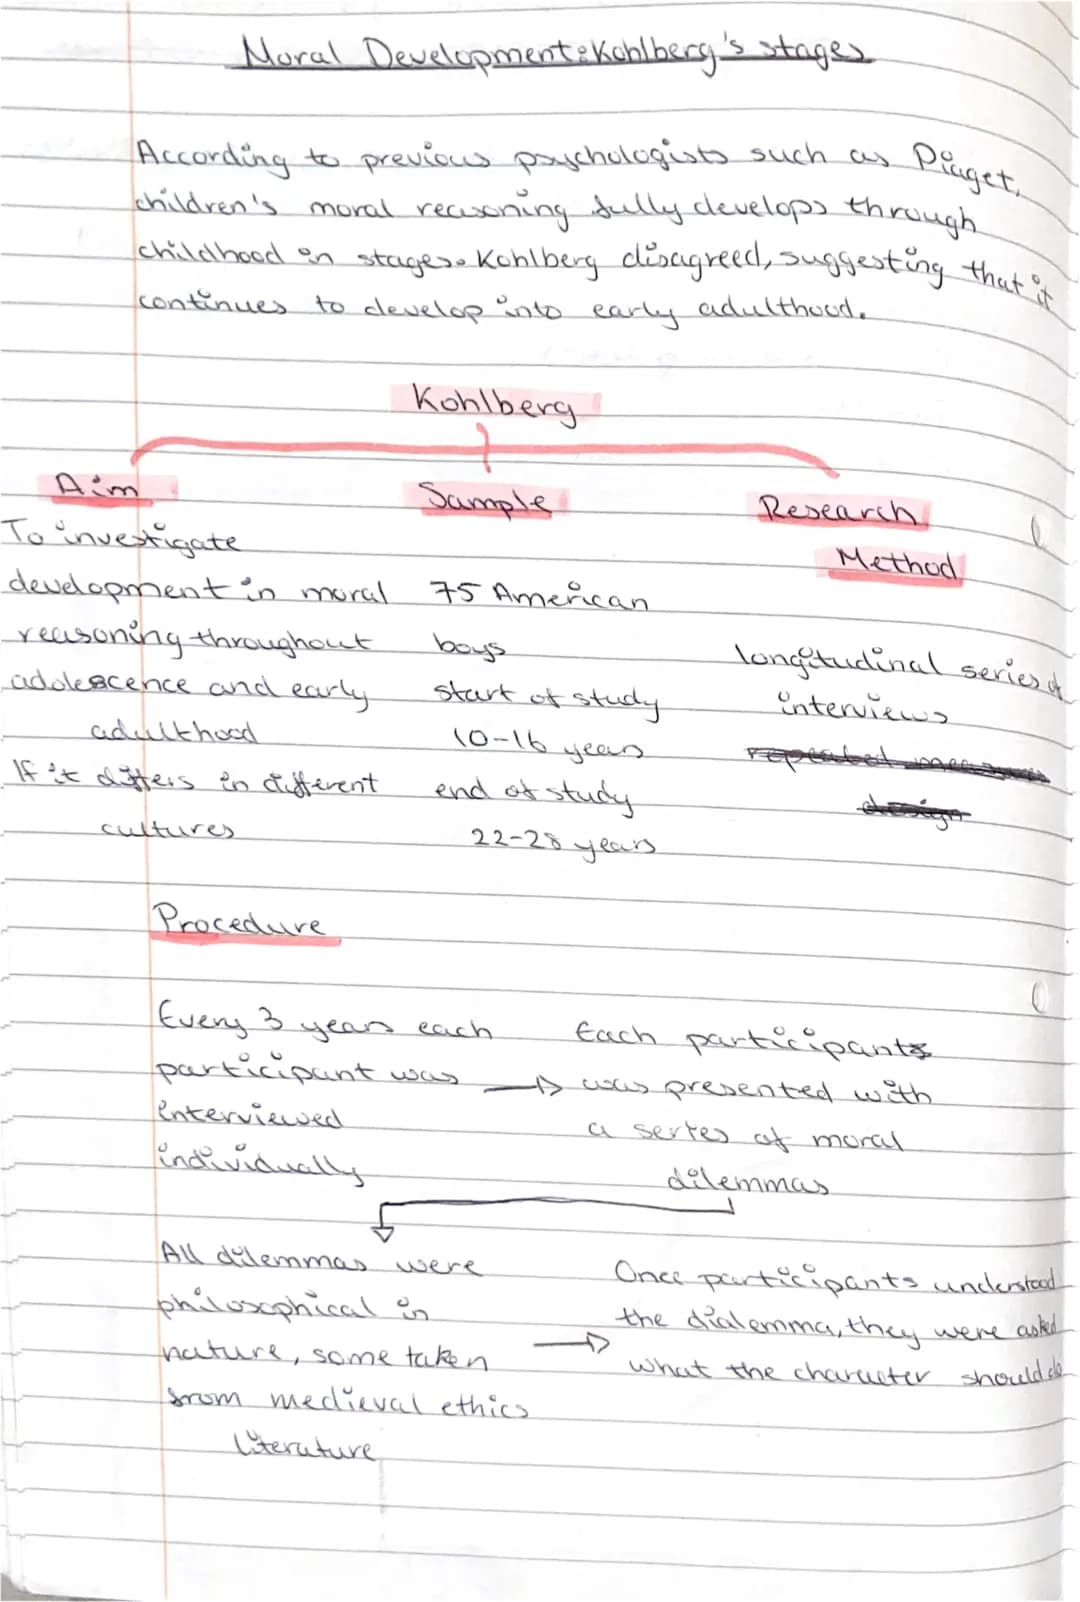 Moral Development: Kohlberg's stages
According to previous psychologists such as Piaget,
children's moral reasoning fully develops through
childhood in stages. Kohlberg disagreed, suggesting that it
continues to develop into early adulthood.
Kohlberg
Aim
To investigate
development in moral
reasoning throughout
adolescence and early
adulthood
If it differs in different
cultures
Sample
75 American
boys
start of study
10-16 years
end of study
22-28 years
Research
Method
longitudinal series of
interviews
repeated measures
design
Procedure
Every 3 years each
participant was
interviewed
individually
Each participant
was presented with
a series of moral
dilemmas
All dilemmas were
philosophical in
nature, some taken
from medieval ethics
literature
Once participants understood
the dialemma, they were asked
what the character should do